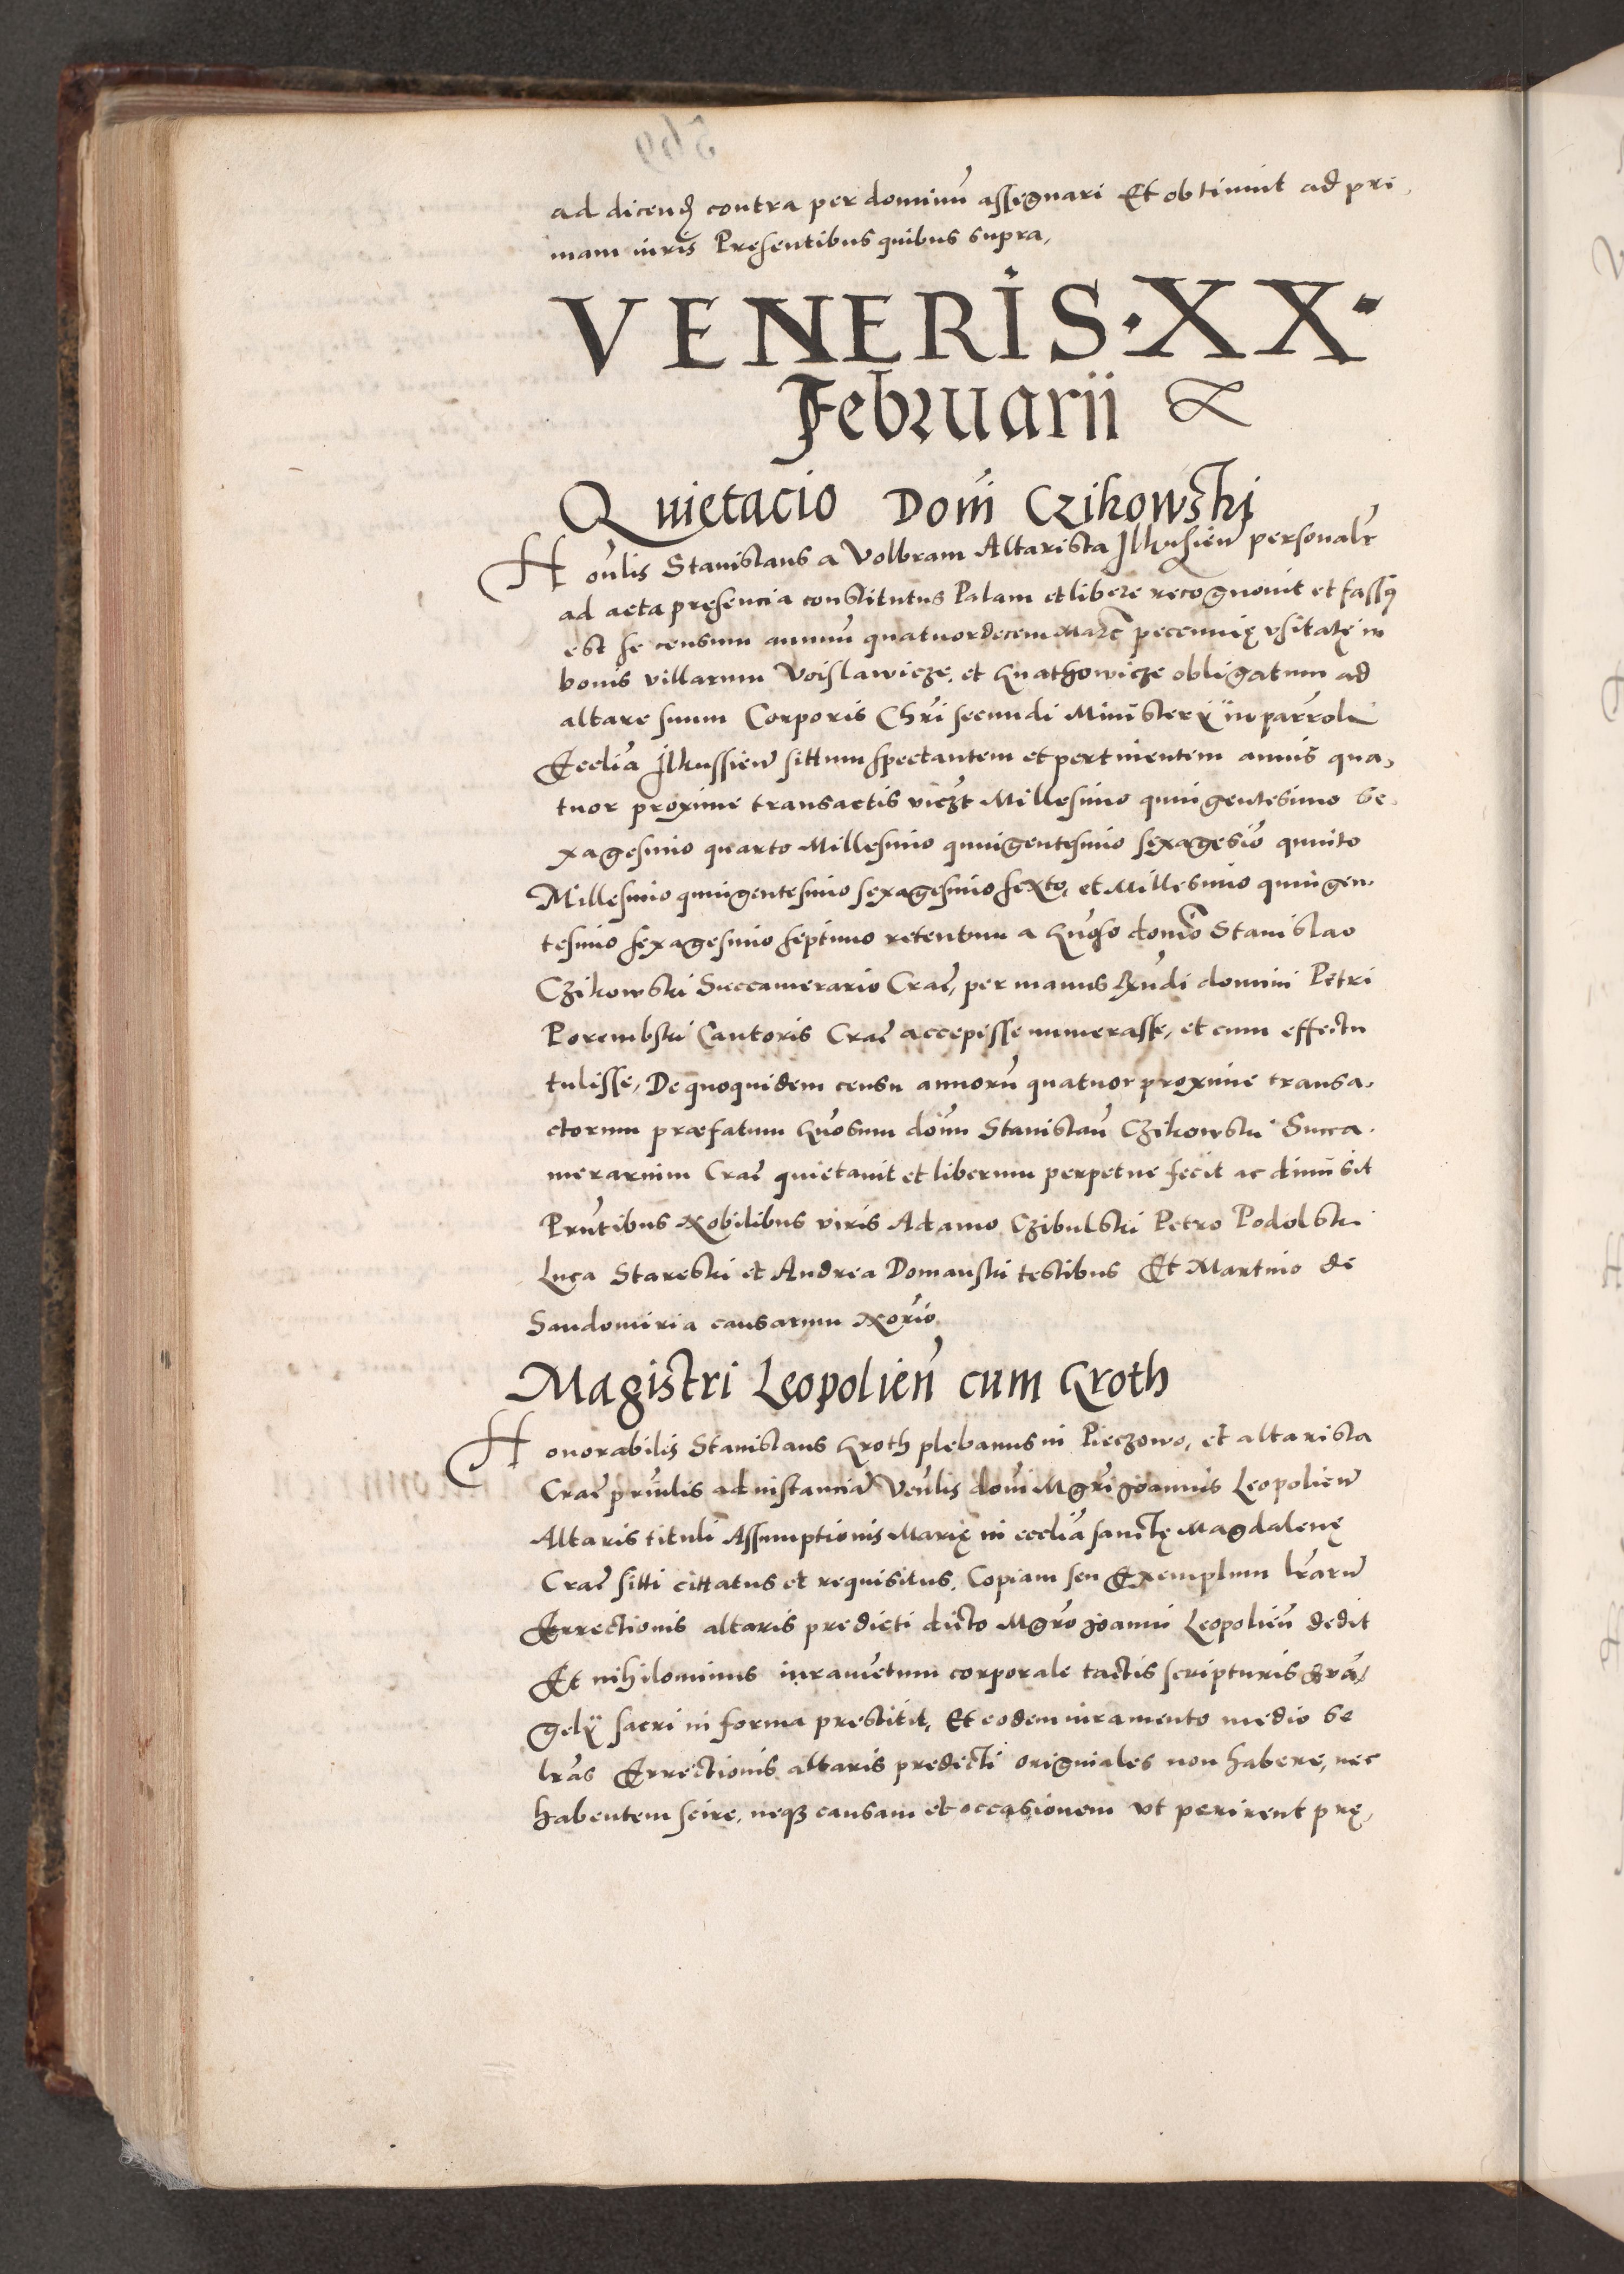 ad dicendū contra per dominū assignari Et obtinuit ad pri,
mam iuris Presentibus quibus supra,
VENERIS·XX·
Februarii &
Quietacio Doni Czikowski
Honlis Stanislaus a Volbram Altarista Ilkusien personalr
ad acta presencia constitutus Palam et libere recognouit et fassq
est se censum annuū quatuordecem Marc pecennię vsitatę in
bonis villarum Voislawicze, et Knathowicze obligatum ad
altare suum Corporis Chri secundi Ministerÿ in parrol
Ecclia Ilkussien sittum spectantem et pertinentem annis qua,
tuor proxime transactis viczt Millesimo quingentesimo se,
xagesimo quarto Millesimo quingentesimo sexagesio quinto
Millesimo quingentesimo sexagesimo sexto, et Millesimo quingen,
tesimo sexagesimo septimo retentum a Gnoso domio Stanislao
Czikowski Succamerario Crac, per manus Rndi domini Petri
Porembski Cantoris Crac accepisse numerasse, et cum effectu
tulisse, De quoquidem censu annorū quatuor proxime transa,
ctorum præfatum Gnosum donū Stanislaū Czikowski Succa,
merarium Crac quietauit et liberum perpetue fecit ac dimisit
Prntibus Nobilibus viris Adamo Czibulski Petro Podolski
Luca Stareski et Andrea Domanski testibus Et Martino de
Sandomiria causarum Norio
Magistri Leopolien cum Kroth
Honorabilis Stanislaus Kroth plebanus in Pieczowo, et altarista
Crac prinlis ad instanciā Venlis doni Mgri Joannis Leopolien
Altaris tituli Assumptionis Marię in ecclia sanctę Magdalenę
Crac sitti cittatus et requisitus, Copiam seu Exemplum lrarū
Errectionis altaris predicti dicto Mgro Joanni Leopolien dedit
Et nihilominus iuramētum corporale tactis scripturis Evā,
gelÿ sacri in forma prestitit, Et eodem iuramento medio se
lras Errectionis altaris predicti originales non habere, nec
habentem scire, neqz causam et occasionem vt perirent prę,